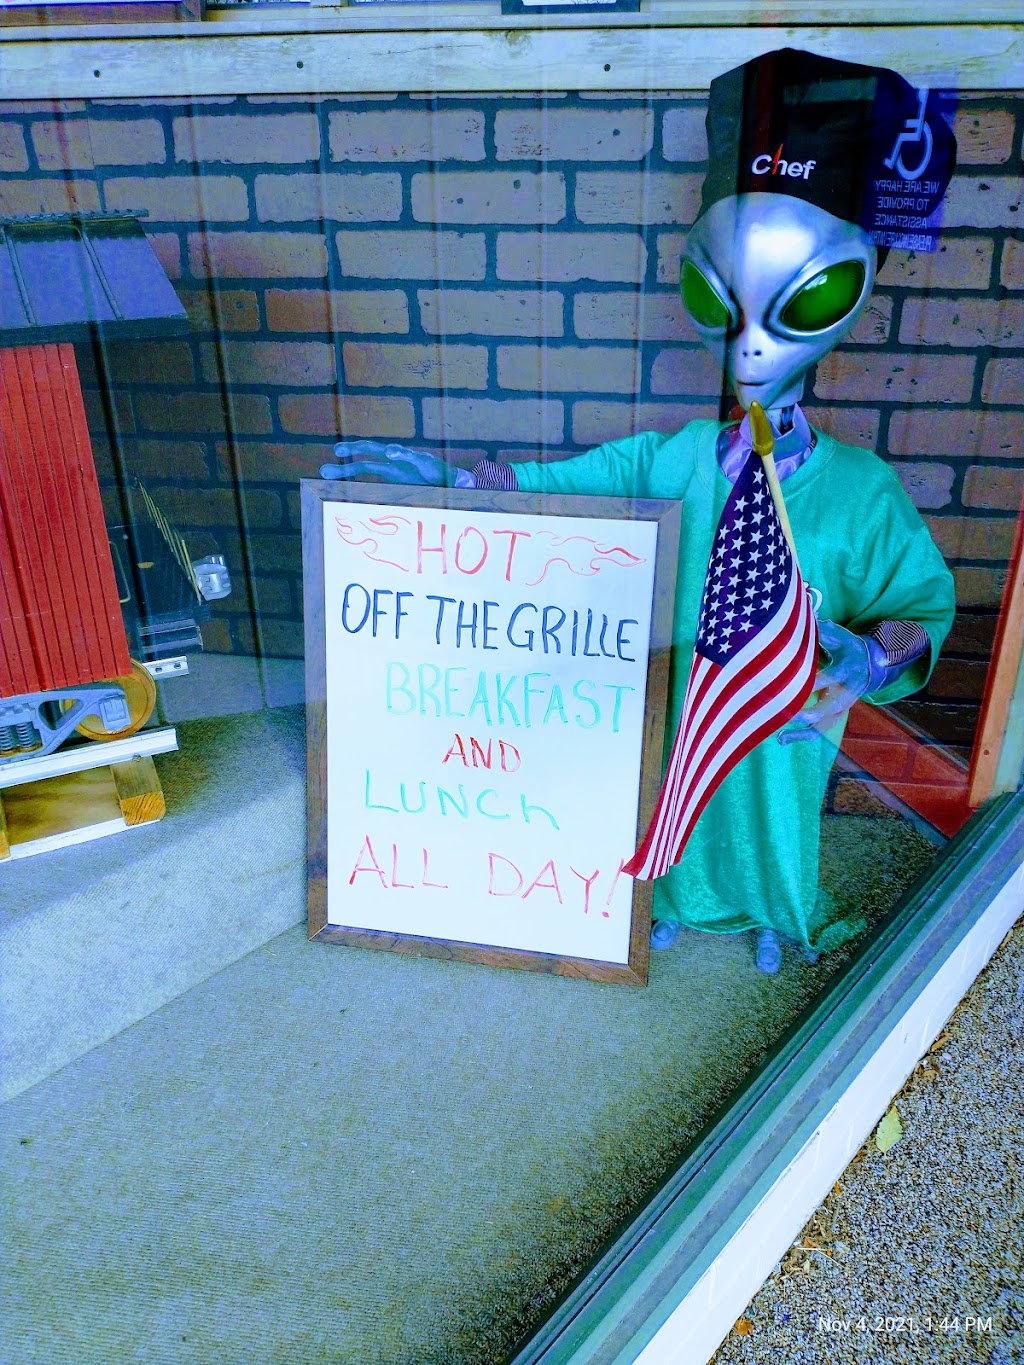 Chef
WE ARE HAPPY
TO PROVIDE
ASSISTANCE
HOT
OFF THE GRILLE
BREAKFAST
AND
LUNCh
ALL DAY!
Nov 4, 2021, 1:44 PM